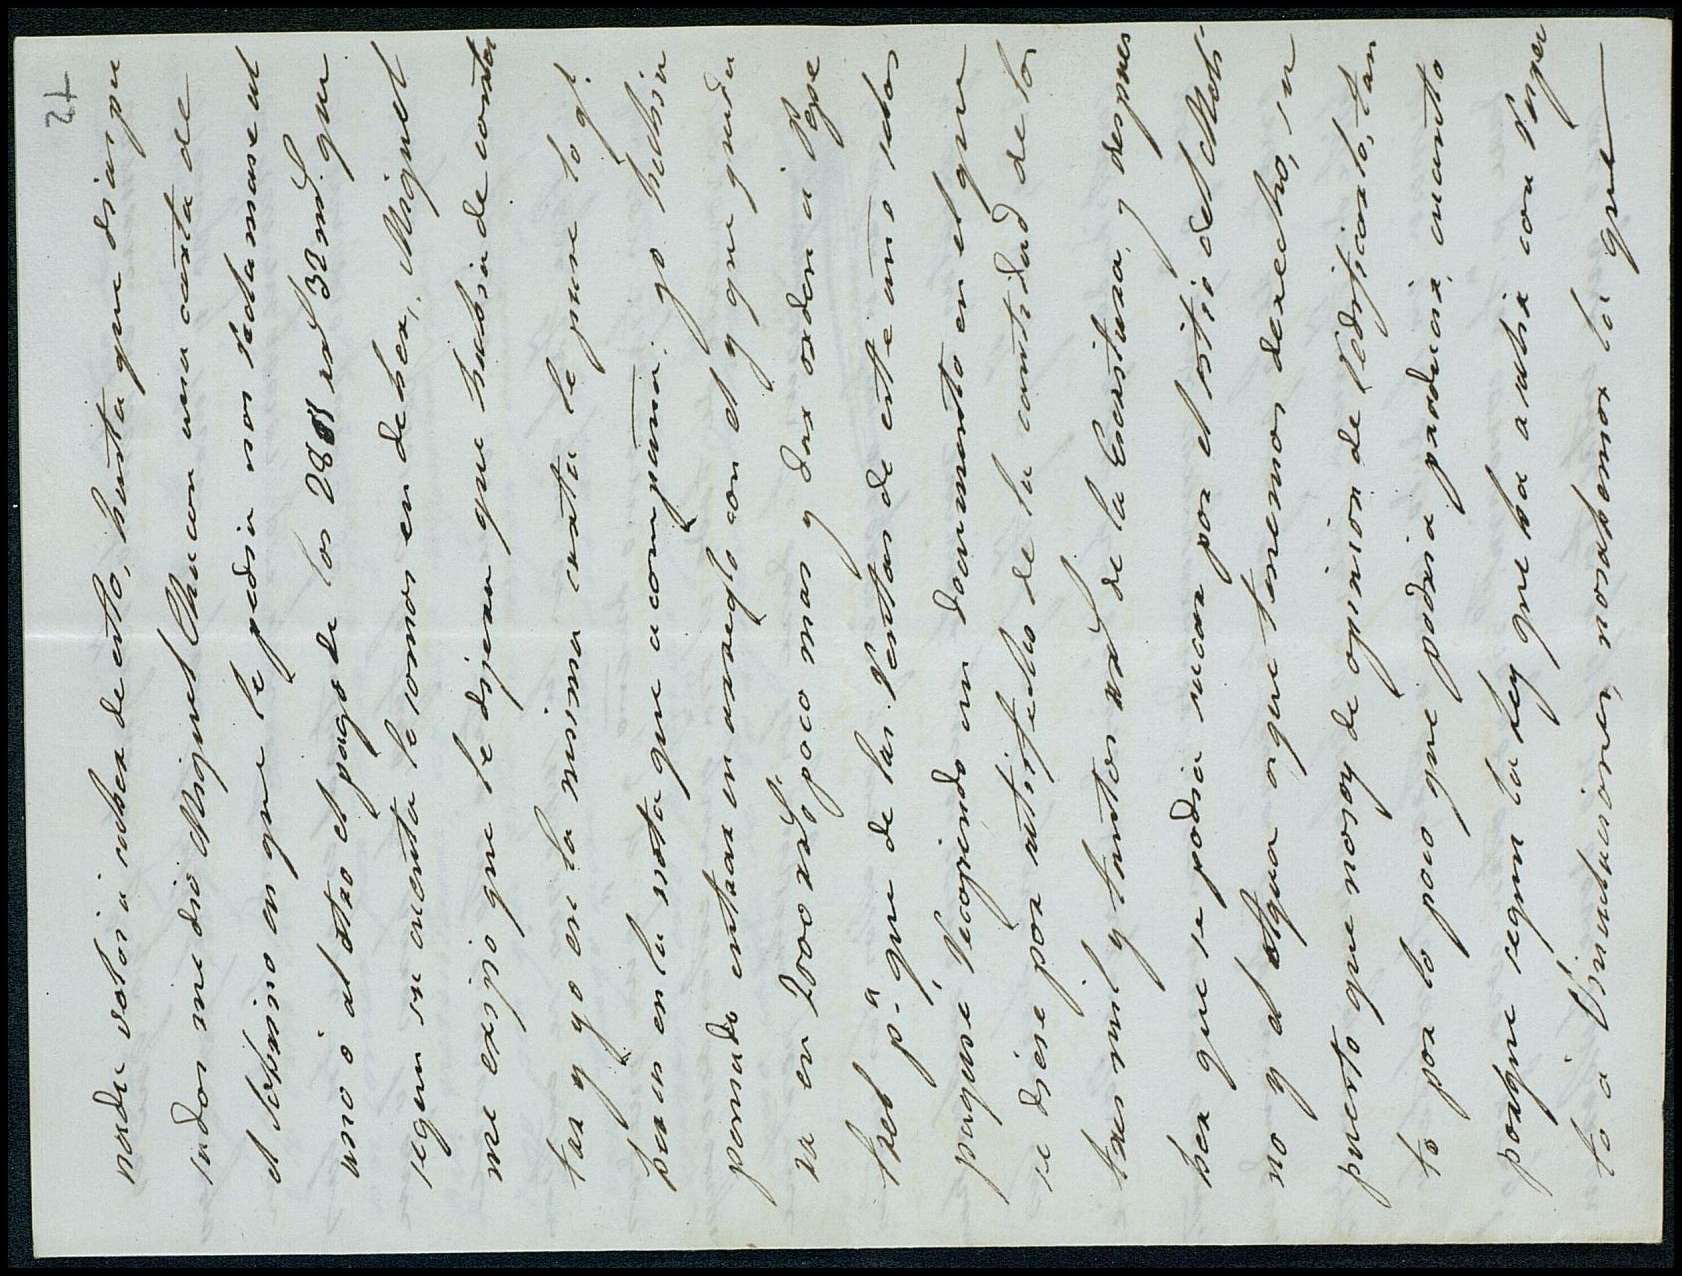 27
nada volvi a saber de esto, hasta que dias pa
sados me dió Miguel Chacon una carta de
el sobrino en que le pedia nos reclamase al
uno ó al otro el pago de los 2888 rs 32 md. que
segun su cuenta le somos en deber, Miguel
me exijio que le dijera que habia de contes
tar y yo en la misma carta le puse lo q.
veras en la nota que acompaña: yo habia
pensado entrar en arreglo con el y que queda
ra en 2000 rs. poco mas y dar orden a Pepe
p.a que de las Rentas de este año se los
pagase, recogiendo un documento en el que
se diese por satisfecho de la cantidad de los
tres mil y tantos rs. de la Escritura, y despues
ver que se podia sacar por el sitio del Moli
no y el agua a que tenemos derecho, su
puesto que no soy de opinion de Redificarlo, tan
to por lo poco que podria producir, cuanto
porque segun la ley que va a salir con respec
to a Vinculaciones, no sabemos lo que